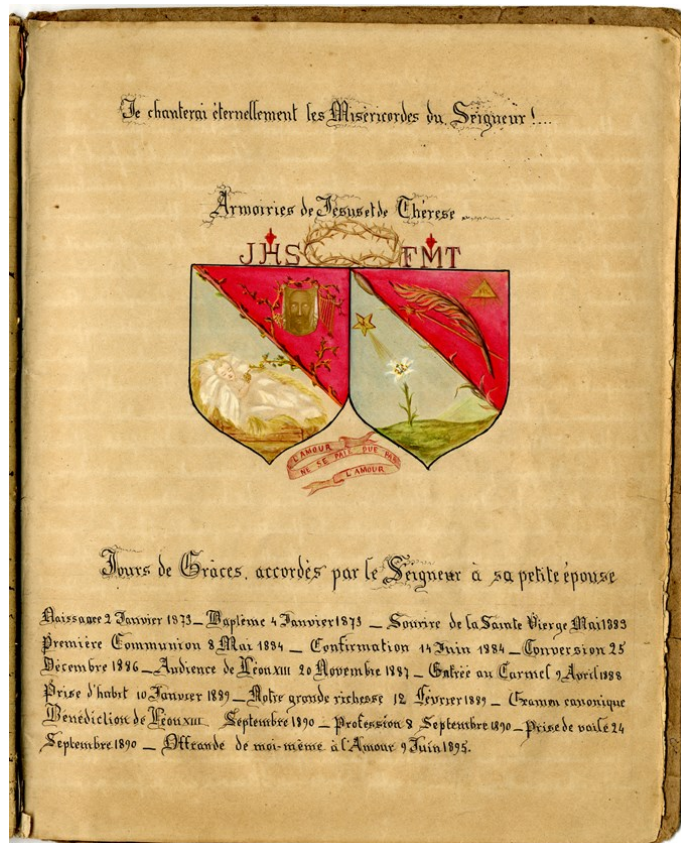 Je chanterai éternellement les Miséricordes du Seigneur !....
Armoiries de Jésus et de Thérèse
JHS FMT
L'AMOUR NE SE PAIE QUE PAR
L'AMOUR
Jours de Grâces, accordés par le Seigneur à sa petite épouse
Naissance 2 Janvier 1873 _ Baptême 4 Janvier 1873 _ Sourire de la Sainte Vierge Mai 1883
Première Communion 8 Mai 1884 _ Confirmation 14 Juin 1884 _ Conversion 25
Décembre 1886 _ Audience de Léon XIII 20 Novembre 1887 _ Entrée au Carmel 9 Avril 1888
Prise d'habit 10 Janvier 1889 _ Notre grande richesse 12 Février 1889 _ Examen canonique
Bénédiction de Léon XIII Septembre 1890 _ Profession 8 Septembre 1890 _ Prise de voile 24
Septembre 1890 _ Offrande de moi-même à l'Amour 9 Juin 1895.